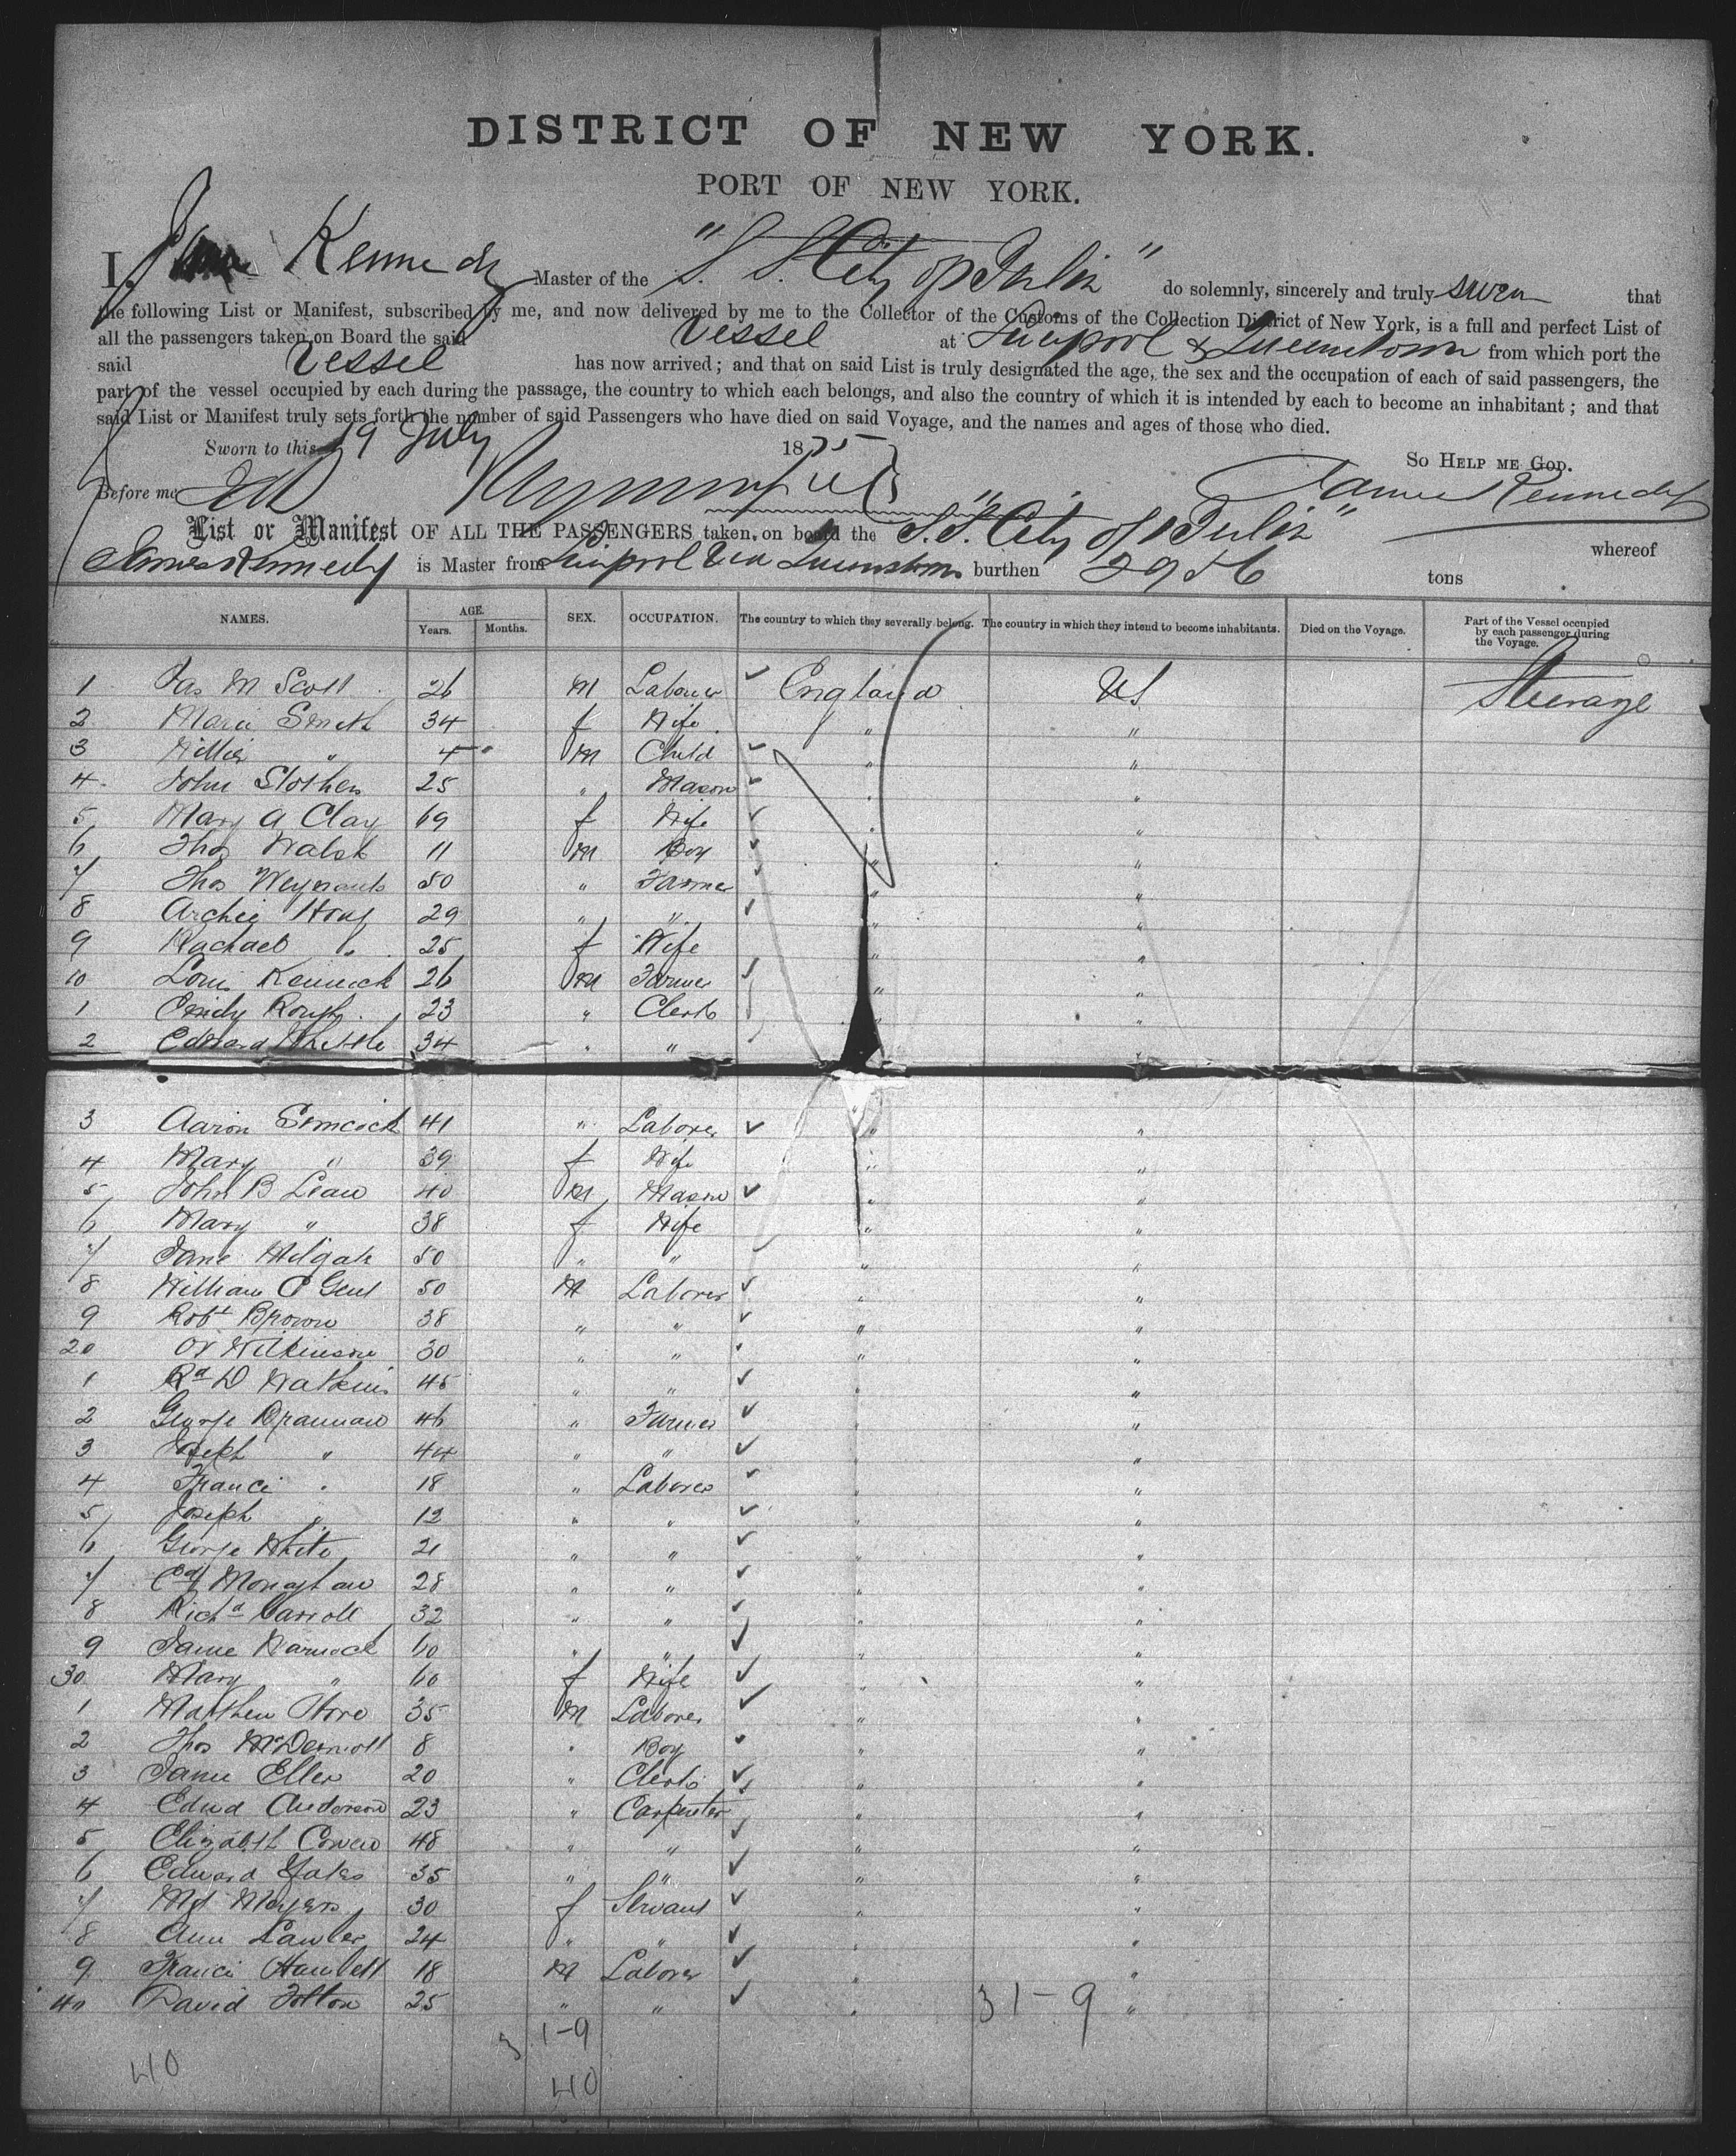 DISTRICT OF NEW YORK.
PORT OF NEW YORK.
I, Kennedy Master of the "S. S. City of Berlin" do solemnly, sincerely and truly swear that
the following List or Manifest, subscribed by me, and now delivered by me to the Collector of the Customs of the Collection District of New York, is a full and perfect List of
all the passengers taken on Board the said Vessel at Liverpool & Queenstown from which port the
said Vessel has now arrived; and that on said List is truly designated the age, the sex and the occupation of each of said passengers, the
part of the vessel occupied by each during the passage, the country to which each belongs, and also the country of which it is intended by each to become an inhabitant; and that
said List or Manifest truly sets forth the number of said Passengers who have died on said Voyage, and the names and ages of those who died.
Sworn to this 19 July 1875
So HELP ME GOD.
Before me James Kennedy
List or Manifest OF ALL THE PASSENGERS taken on board the "S.S. City of Berlin" whereof
James Kennedy is Master from Liverpool Via Queenstown burthen 2956 tons
NAMES. AGE. Years. Months. SEX. OCCUPATION. The country to which they severally belong. The country in which they intend to become inhabitants. Died on the Voyage. Part of the Vessel occupied by each passenger during the Voyage.
1 Jas M Scott 26 M Labourer England US Steerage
2 Marie Smith 34 f Wife " "
3 Willie " 4 M Child " "
4 John Slothers 25 " Mason " "
5 Mary A Clay 69 f Wife " "
6 Thos Walsh 11 M Boy " "
7 Thos 50 " Farmer " "
8 Archie Hoag 29 " " " "
9 Rachael " 25 f Wife " "
10 Louis 26 M Farmer " "
1 23 " Clerk " "
2 Edward 34 " " " "
3 Aaron Simcock 41 " Laborer " "
4 Mary " 39 f Wife " "
5 John B Lean 40 M Mason " "
6 Mary " 38 f Wife " "
7 Jane 50 " " " "
8 William C Gent 50 M Laborer " "
9 Robt Brown 38 " " " "
20 Wilkinson 30 " " " "
1 Rd D Watkins 45 " " " "
2 George Brannan 46 " Farmer " "
3 Joseph " 44 " " " "
4 Franci " 18 " Laborer " "
5 Joseph " 12 " " " "
6 George White 21 " " " "
7 Edd Monaghan 28 " " " "
8 Richd Carroll 32 " " " "
9 Jame Warnock 60 " " " "
30 Mary " 60 f Wife " "
1 Matthew Hore 35 M Laborer " "
2 Thos McDermott 8 " Boy " "
3 Jame Eller 20 " Clerk " "
4 Edwd Anderson 23 " Carpenter " "
5 Elizabeth Cowen 48 " " " "
6 Edward Yates 35 " " " "
7 Mgt Meyers 30 f Servant " "
8 Ann Lawler 24 " " " "
9 Franci Hamlett 18 M Laborer " "
40 David Tolton 25 " " " "
31-9
31-9
40
40